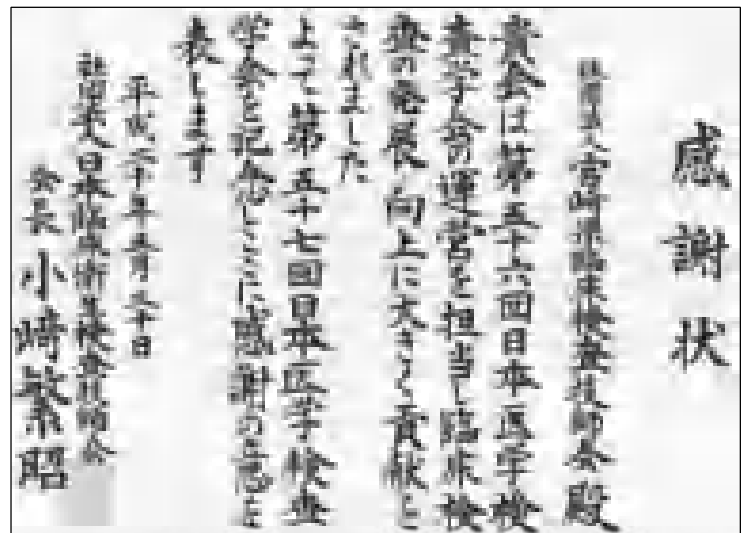 感謝状
社団法人宮崎県臨床検査技師会殿
貴会は第五十六回日本医学検
査学会の運営を担当し臨床検
査の発展・向上に大きく貢献を
されました
よって第五十七回日本医学検査
学会を記念しここに感謝の意を
表します
平成二十年五月三十日
社団法人日本臨床衛生検査技師会
会長 小崎繁昭